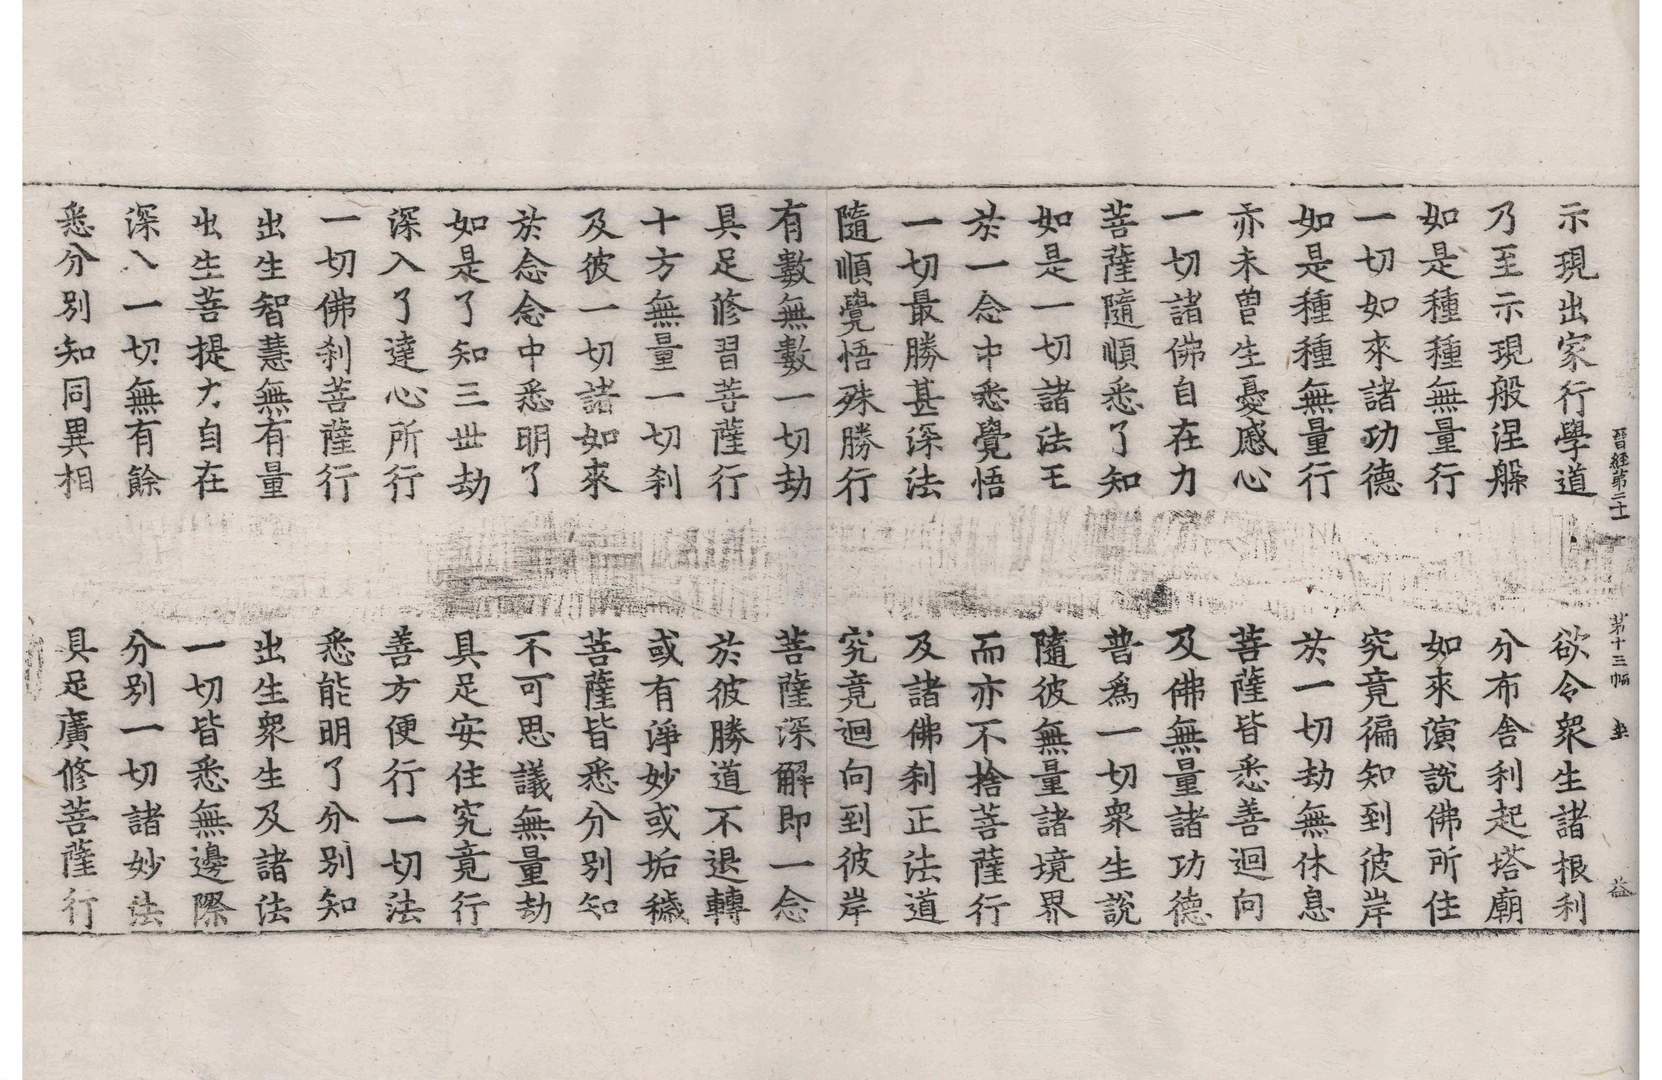 晉經第二十一 第十三幅 益
示現出家行學道 欲令衆生諸根利
乃至示現般涅槃 分布舍利起塔廟
如是種種無量行 如來演說佛所住
一切如來諸功德 究竟徧知到彼岸
如是種種無量行 於一切劫無休息
亦未曾生憂慼心 菩薩皆悉善迴向
一切諸佛自在力 及佛無量諸功德
菩薩隨順悉了知 普爲一切衆生說
如是一切諸法王 隨彼無量諸境界
於一念中悉覺悟 而亦不捨菩薩行
一切最勝甚深法 及諸佛刹正法道
隨順覺悟殊勝行 究竟迴向到彼岸
有數無數一切劫 菩薩深解即一念
具足修習菩薩行 於彼勝道不退轉
十方無量一切刹 或有淨妙或垢穢
及彼一切諸如來 菩薩皆悉分別知
於念念中悉明了 不可思議無量劫
如是了知三世劫 具足安住究竟行
深入了達心所行 善方便行一切法
一切佛刹菩薩行 悉能明了分別知
出生智慧無有量 出生衆生及諸法
出生菩提大自在 一切皆悉無邊際
深入一切無有餘 分別一切諸妙法
悉分別知同異相 具足廣修菩薩行